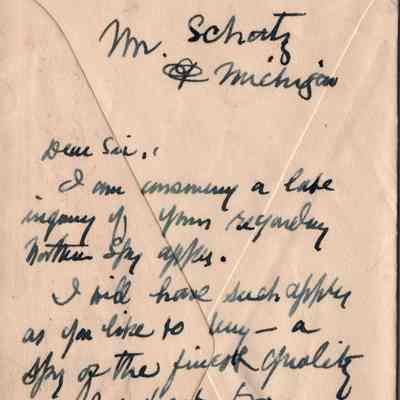 Mr. Schortz
Michigan
Dear Sir,
I am answering a late
inquiry of yours regarding
Northern Spy apples.
I will have such apples
as you like to buy — a
Spy of the finest quality